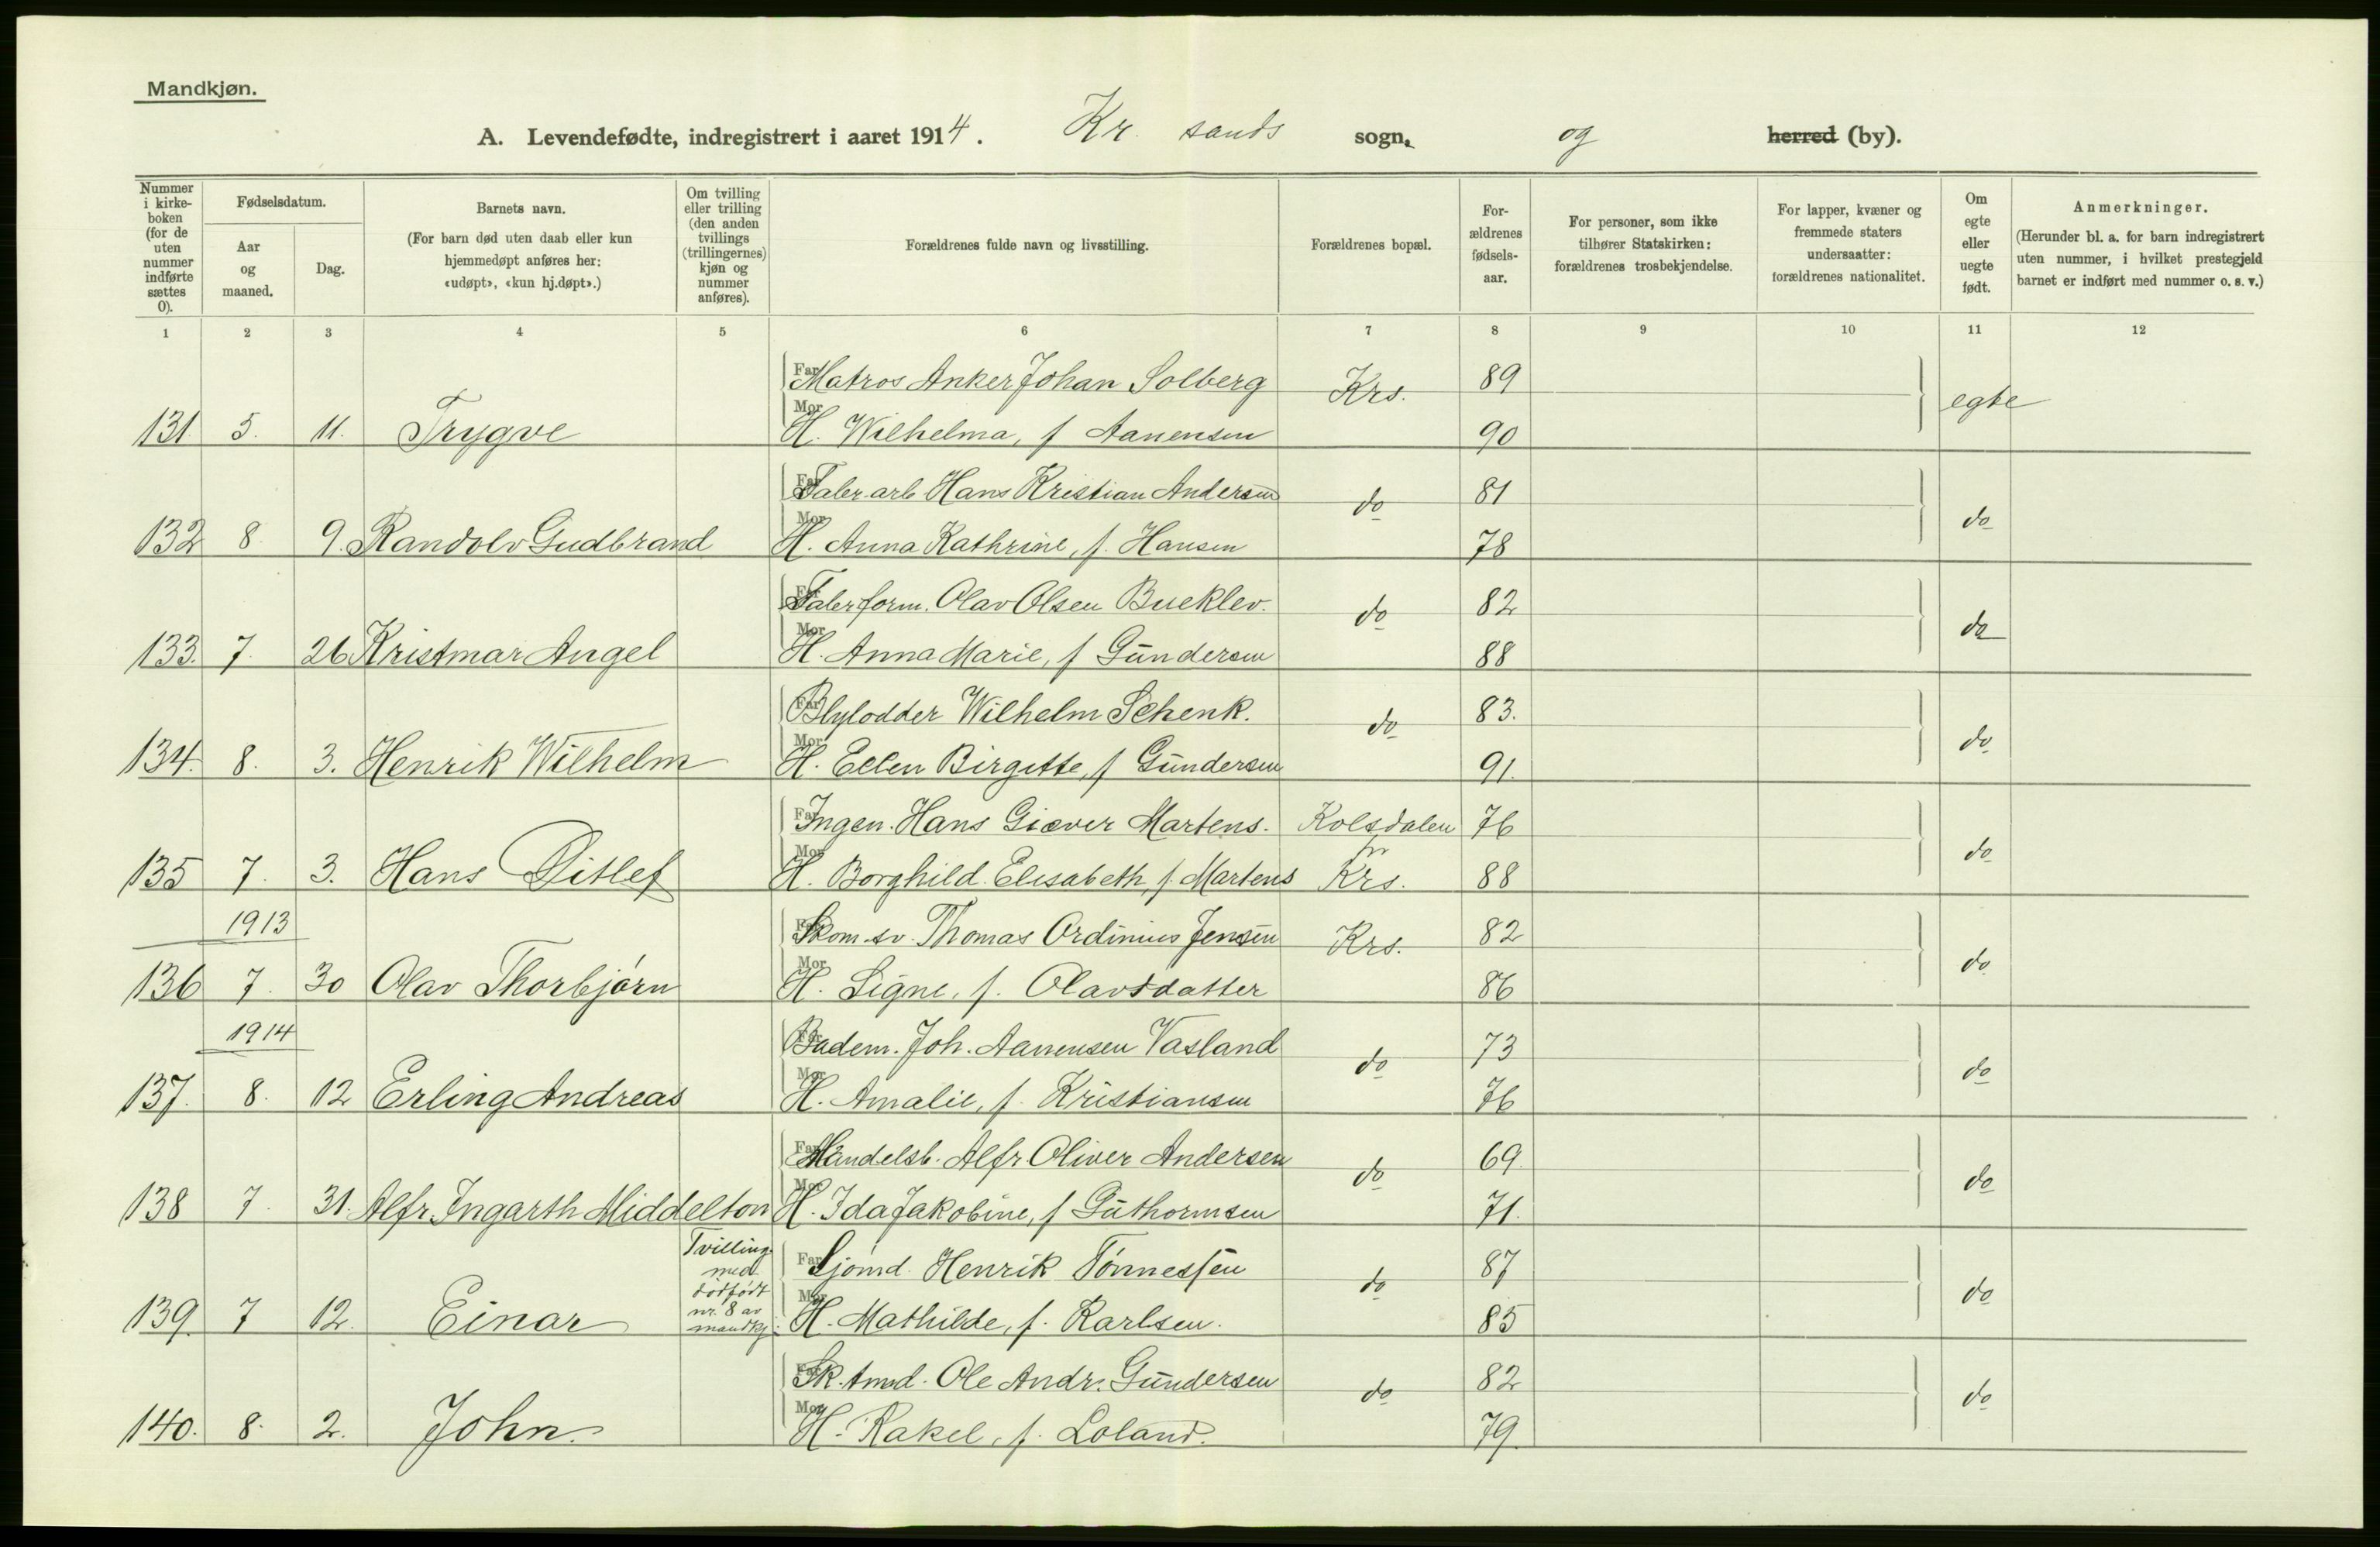 Mandkjøn.
A. Levendefødte, indregistrert i aaret 1914. Kr. sands sogn, og herred (by).
Nummer i kirke-boken (for de uten nummer indførte sættes 0).
Fødselsdatum.
Aar og maaned.
Dag.
Barnets navn.
(For barn død uten daab eller kun hjemmedøpt anføres her: «udøpt», «kun hj.døpt».)
Om tvilling eller trilling (den anden tvillings (trillingernes) kjøn og nummer anføres).
Forældrenes fulde navn og livsstilling.
Forældrenes bopæl.
For-ældrenes fødsels-aar.
For personer, som ikke tilhører Statskirken: forældrenes trosbekjendelse.
For lapper, kvæner og fremmede staters undersaatter: forældrenes nationalitet.
Om egte eller uegte født.
Anmerkninger.
(Herunder bl. a. for barn indregistrert uten nummer, i hvilket prestegjeld barnet er indført med nummer o. s. v.)
1 2 3 4 5 6 7 8 9 10 11 12
Far Matros Anker Johan Solberg Krs. 89 egte
131 5. 11. Trygve Mor H. Wilhelma, f Aanensen 90
Far Faber.arb Hans Kristian Andersen do 81 do
132 8 9. Randolv Gudbrand Mor H. Anna Kathrine, f. Hansen 78
Far Faberform. Olav Olsen Bueklev. do 82 do
133. 7. 26 Kristmar Angel Mor H. Anna Marie, f Gundersen 88
Far Blylodder Wilhelm Schenk. do 83. do
134. 8. 3. Henrik Wilhelm Mor H. Ellen Birgitte, f Gundersen 91.
Far Ingen. Hans Giæver Martens. Kolsdalen 76 do
135 7. 3. Hans Ditlef Mor H. Borghild Elisabeth, f. Martens Krs. 88
1913 Far Skom.sv. Thomas Ordinius Jensen Krs. 82 do
136 7. 30 Olav Thorbjørn Mor H. Signe, f. Olavsdatter 86
1914 Far Badem. Joh. Aanensen Vasland do 73 do
137. 8. 12 Erling Andreas Mor H. Amalie, f. Kristiansen 76
Far Handelsb. Alfr. Oliver Andersen do 69. do
138 7. 31. Alfr. Ingarth Middelton Mor H. Ida Jakobine, f Guthormsen 71.
Tvilling
med
dødfødt
nr. 8 av
mandkj.
Far Sjømd. Henrik Tønnessen do 87 do
139. 7 12. Einar Mor H. Mathilde, f. Karlsen. 85
Far Ole Andr. Gundersen do 82 do
140. 8. 2. John. Mor H. Rakel, f. Loland. 79.